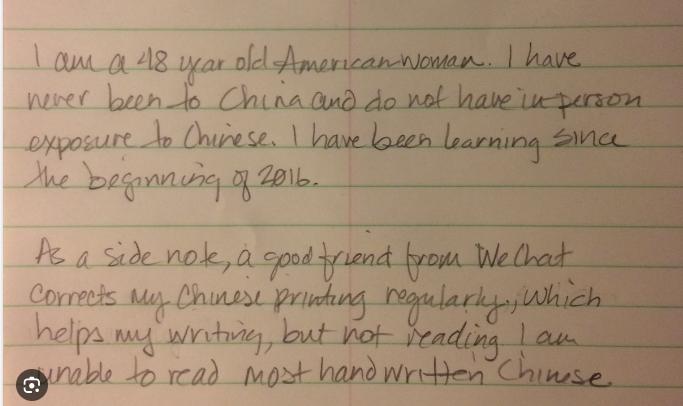 I am a 48 year old American woman. I have
never been to China and do not have in person
exposure to Chinese. I have been learning since
the beginning of 2016.
As a side note, a good friend from WeChat
corrects my Chinese printing regularly, which
helps my writing, but not reading I am
unable to read most handwritten Chinese.